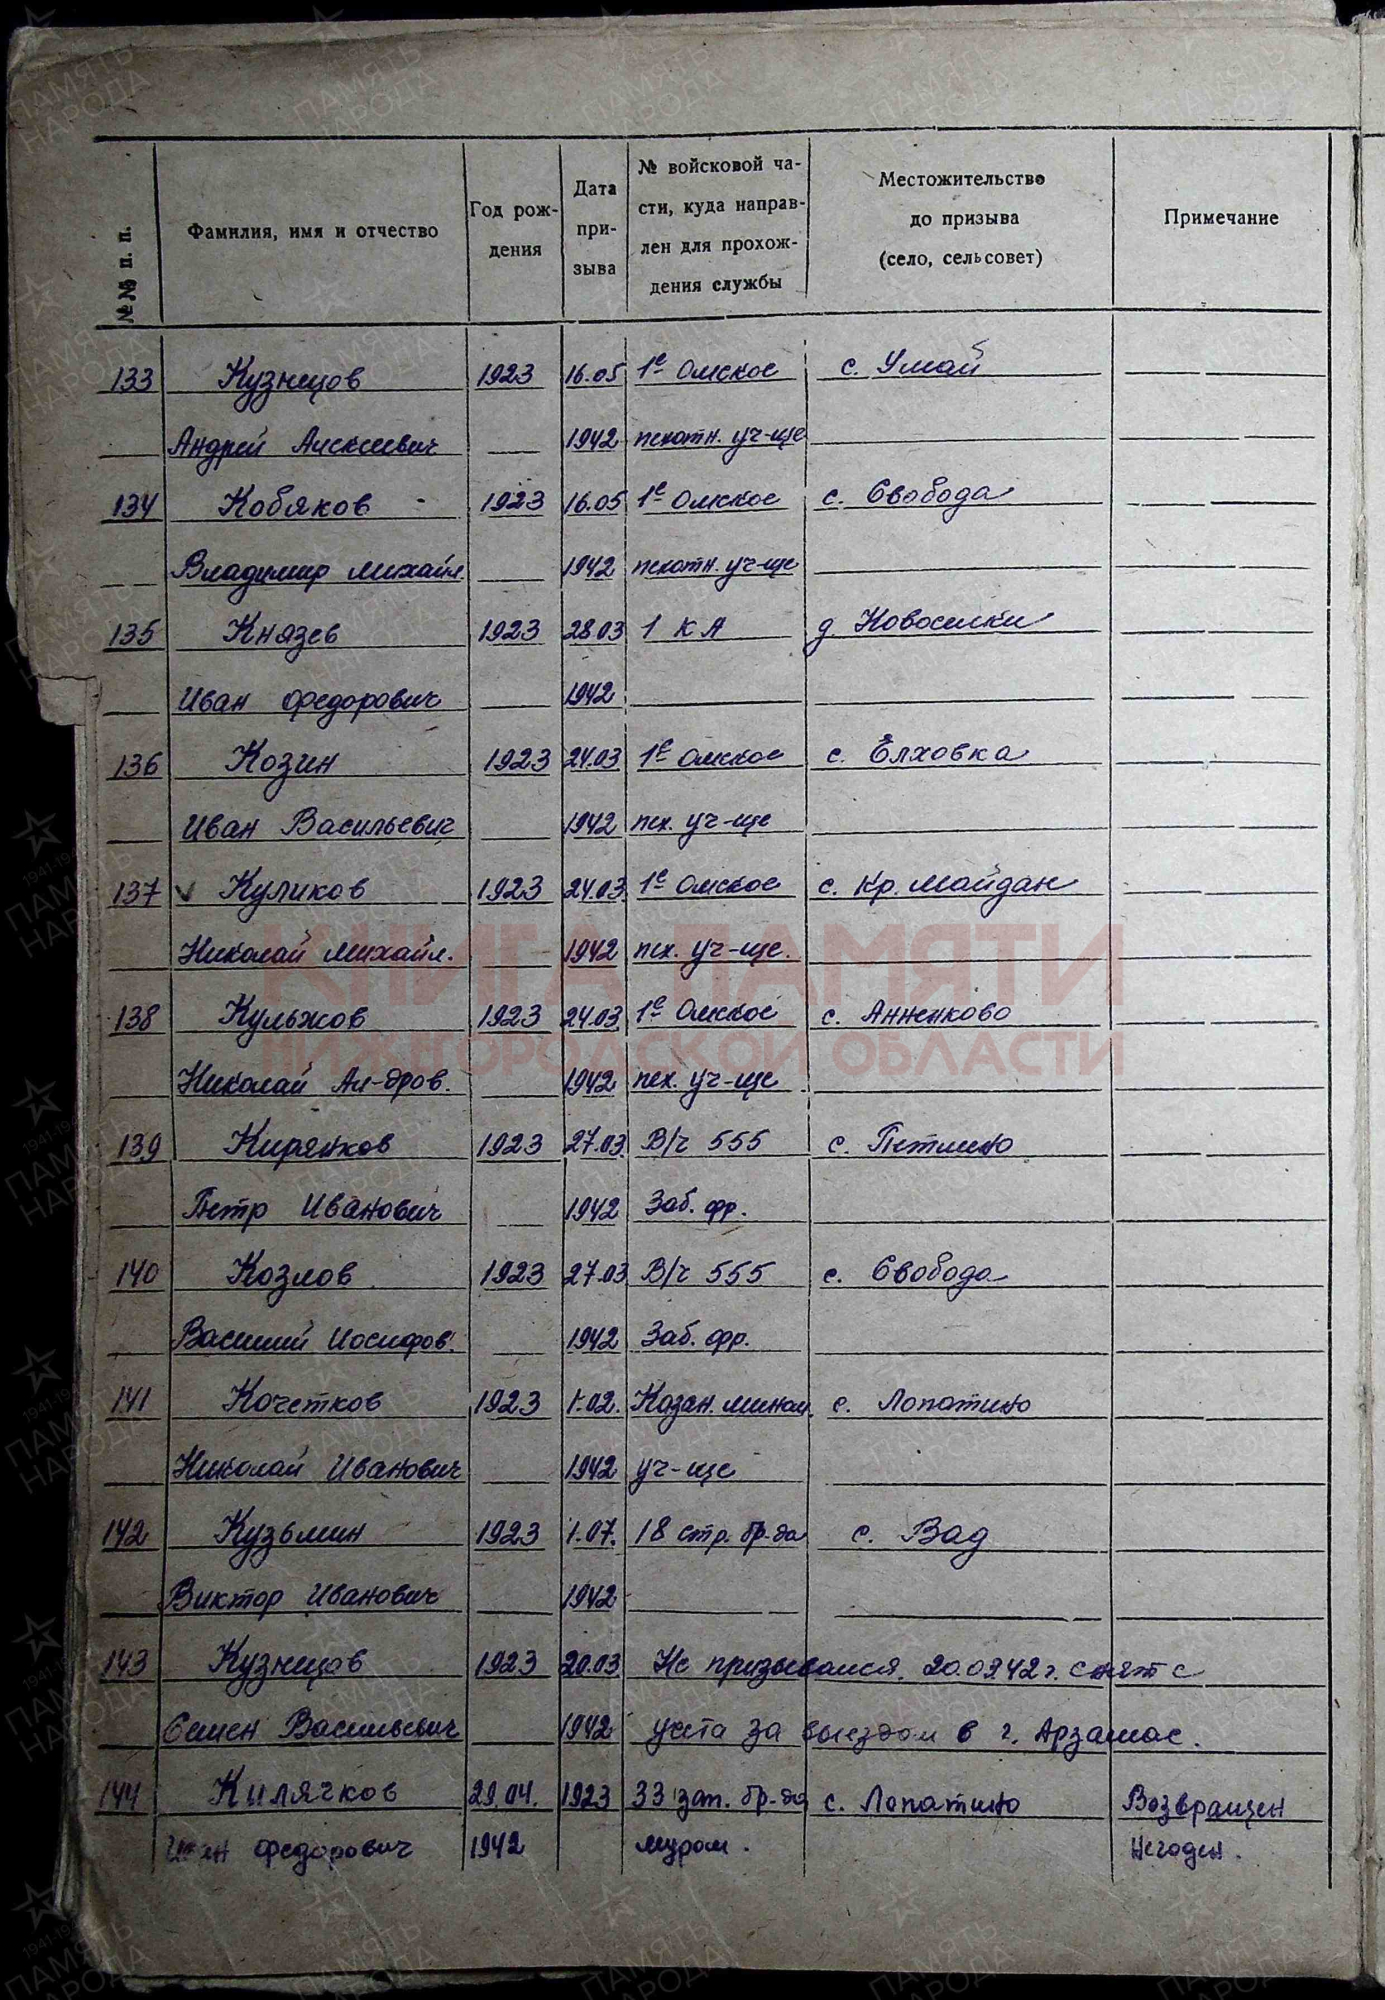 №№ п. п.
Фамилия, имя и отчество
Год рож-
дения
Дата
при-
зыва
№ войсковой ча-
сти, куда направ-
лен для прохож-
дения службы
Местожительство
до призыва
(село, сельсовет)
Примечание
133 Кузнецов 1923 16.05 1е Омское с. Умай
Андрей Алексеевич 1942 пехотн. уч-ще
134 Кобяков 1923 16.05 1е Омское с. Свобода
Владимир Михайл. 1942 пехотн. уч-ще
135 Князев 1923 28.03 1 КА д. Новоселки
Иван Федорович 1942
136 Козин 1923 24.03 1е Омское с. Елховка
Иван Васильевич 1942 пех. уч-ще
137 Куликов 1923 24.03. 1е Омское с. Кр. Майдан
Николай Михайл. 1942 пех. уч-ще.
138 Кульжов 1923 24.03 1е Омское с. Анненково
Николай Ал-дров. 1942 пех. уч-ще
139 Кирянков 1923 27.03. В/ч 555 с. Петлино
Петр Иванович 1942 Заб. фр.
140 Козлов 1923 27.03 В/ч 555 с. Свобода
Василий Иосифов. 1942 Заб. фр.
141 Кочетков 1923 1.02. Казан. мином. с. Лопатино
Николай Иванович 1942 уч-ще
142 Кузьмин 1923 1.07. 18 стр. бр-да с. Вад
Виктор Иванович 1942
143 Кузнецов 1923 20.03 Не призывался. 20.0342г. снят с
Семен Васильевич 1942 учета за выездом в г. Арзамас.
144 Килячков 29.04. 1923 33 зап. бр-да с. Лопатино Возвращен
Иван Федорович 1942 Муром. Негоден.
КНИГА ПАМЯТИ
НИЖЕГОРОДСКОЙ ОБЛАСТИ
ПАМЯТЬ
НАРОДА